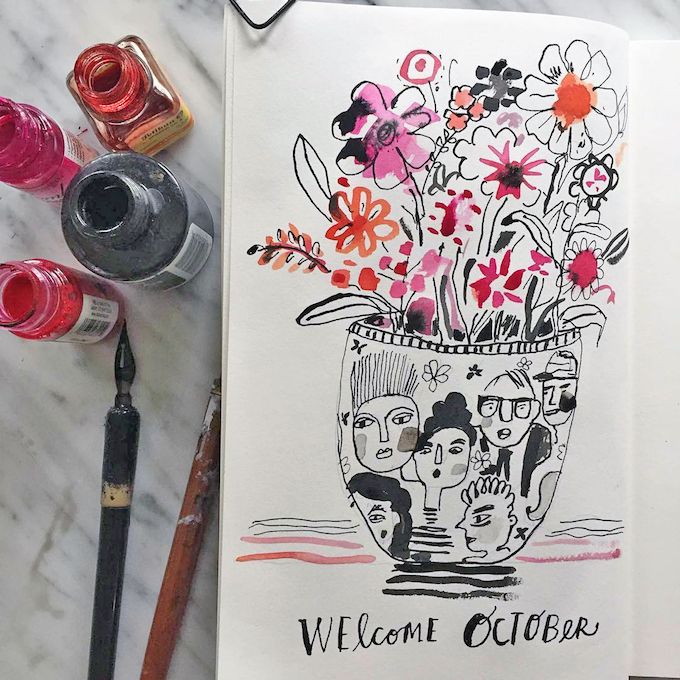 WElcomE OCTOBeR